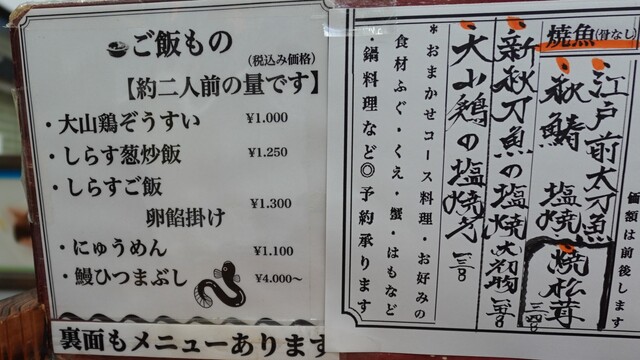 ご飯もの
(税込み価格)
【約二人前の量です】
・大山鶏ぞうすい ¥1.000
・しらす葱炒飯 ¥1.250
・しらすご飯
卵餡掛け ¥1.300
・にゅうめん ¥1.100
・鰻ひつまぶし ¥4.000～
裏面もメニューあります
価額は前後します
焼魚(骨なし)
江戸前太刀魚
秋鯖 塩焼
焼松茸
新秋刀魚の塩焼
大山鶏の塩焼
＊おまかせコース料理・お好みの
食材ふぐ・くえ・蟹・はもなど
鍋料理など◎予約承ります